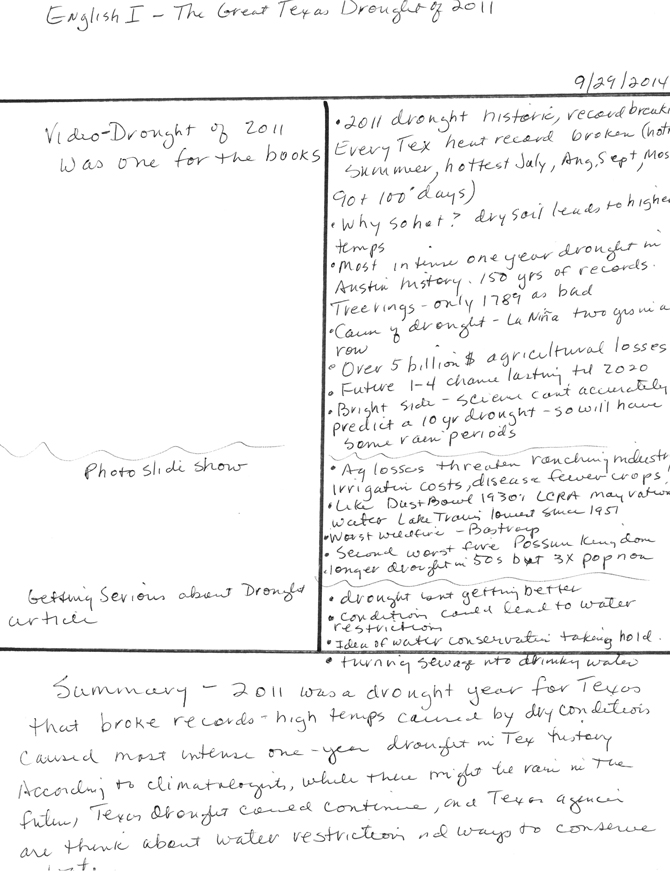 English I - The Great Texas Drought of 2011
9/29/2014
Video-Drought of 2011
was one for the books
• 2011 drought historic, record breaki
Every Tex heat record broken (hott
Summer, hottest July, Aug, Sept, Mos
90+ 100° days)
• Why so hot? dry soil leads to highe
temps
• Most intense one year drought in
Austin history. 150 yrs of records.
Tree rings - only 1789 as bad
• Cause of drought - La Niña two in a
row
• Over 5 billion $ agricultural losses
• Future 1-4 chance lasting til 2020
• Bright side - science can't accurately
predict a 10 yr drought - so will have
some rain periods
Photo slide show
• Ag losses threaten ranching industr
irrigation costs, disease fewer crops
• Like Dust Bowl 1930s LCRA may ration
water Lake Travis lowest since 1951
• Worst wildfire - Bastrop
• Second worst fire Possum Kingdom
• longer drought in 50s but 3X pop now
Getting Serious about Drought
article
• drought isnt getting better
• condition could lead to water
restriction
• Idea of water conservation taking hold.
• turning sewage into drinking water
Summary - 2011 was a drought year for Texas
that broke records - high temps caused by dry conditions
caused most intense one-year drought in Tex history
According to climatologists, while there might be rain in the
future, Texas Drought could continue, and Texas agencies
are think about water restriction nd ways to conserve